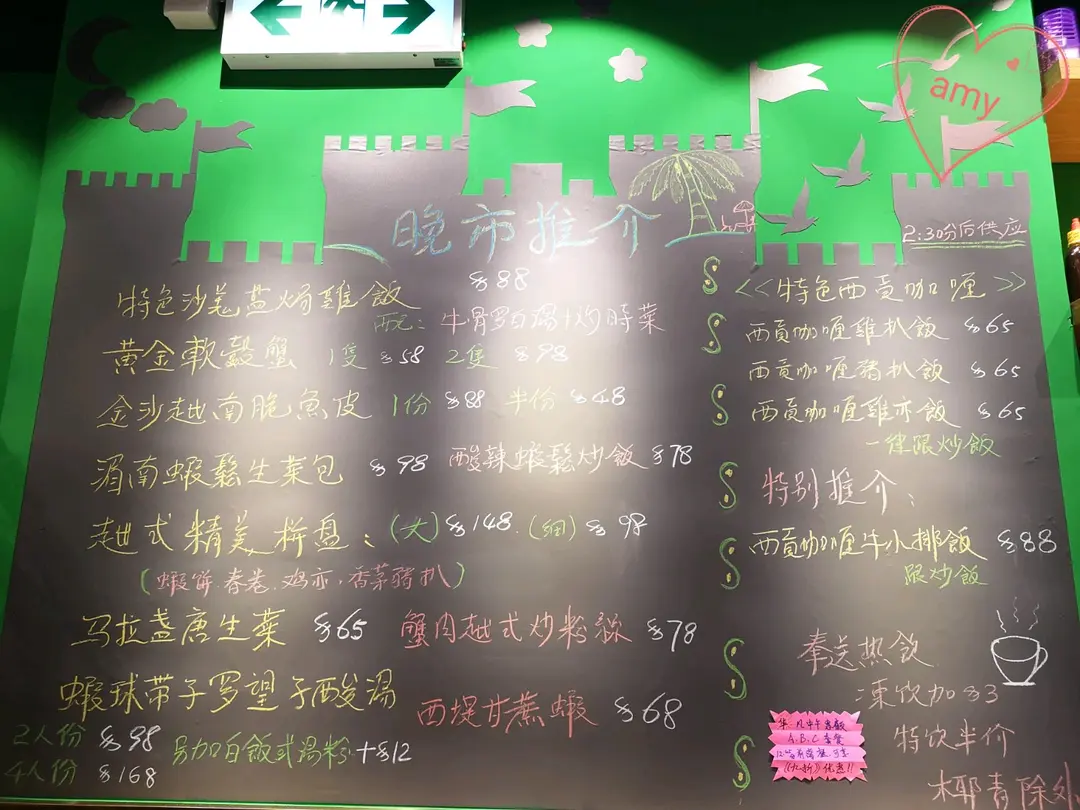 amy
晚市推介
2:30分后供应
特色沙羌盐焗雞飯 $88
牛骨罗白湯+炒時菜
黄金軟殼蟹 1隻 $58 2隻 $98
金沙越南脆魚皮 1份 $88 半份 $48
湄南蝦鬆生菜包 $98
酸辣蝦鬆炒飯 $78
越式精美拼盘:(大) $148.(細) $98
(蝦餅.春卷.鸡亦.香菜豬扒)
马拉盏唐生菜 $65
蟹肉越式炒粉絲 $78
蝦球带子罗望子酸湯
2人份 $98
4人份 $168
另加白飯或湯粉+$12
西堤甘蔗蝦 $68
<<特色西貢咖喱>>
西貢咖喱雞扒飯 $65
西貢咖喱豬扒飯 $65
西貢咖喱雞亦飯 $65
一律跟炒飯
特别推介:
西貢咖喱牛小排飯 $88
跟炒飯
奉送热飲
凍饮加$3
特饮半价
椰青除外
A.B.C套餐
优惠!!